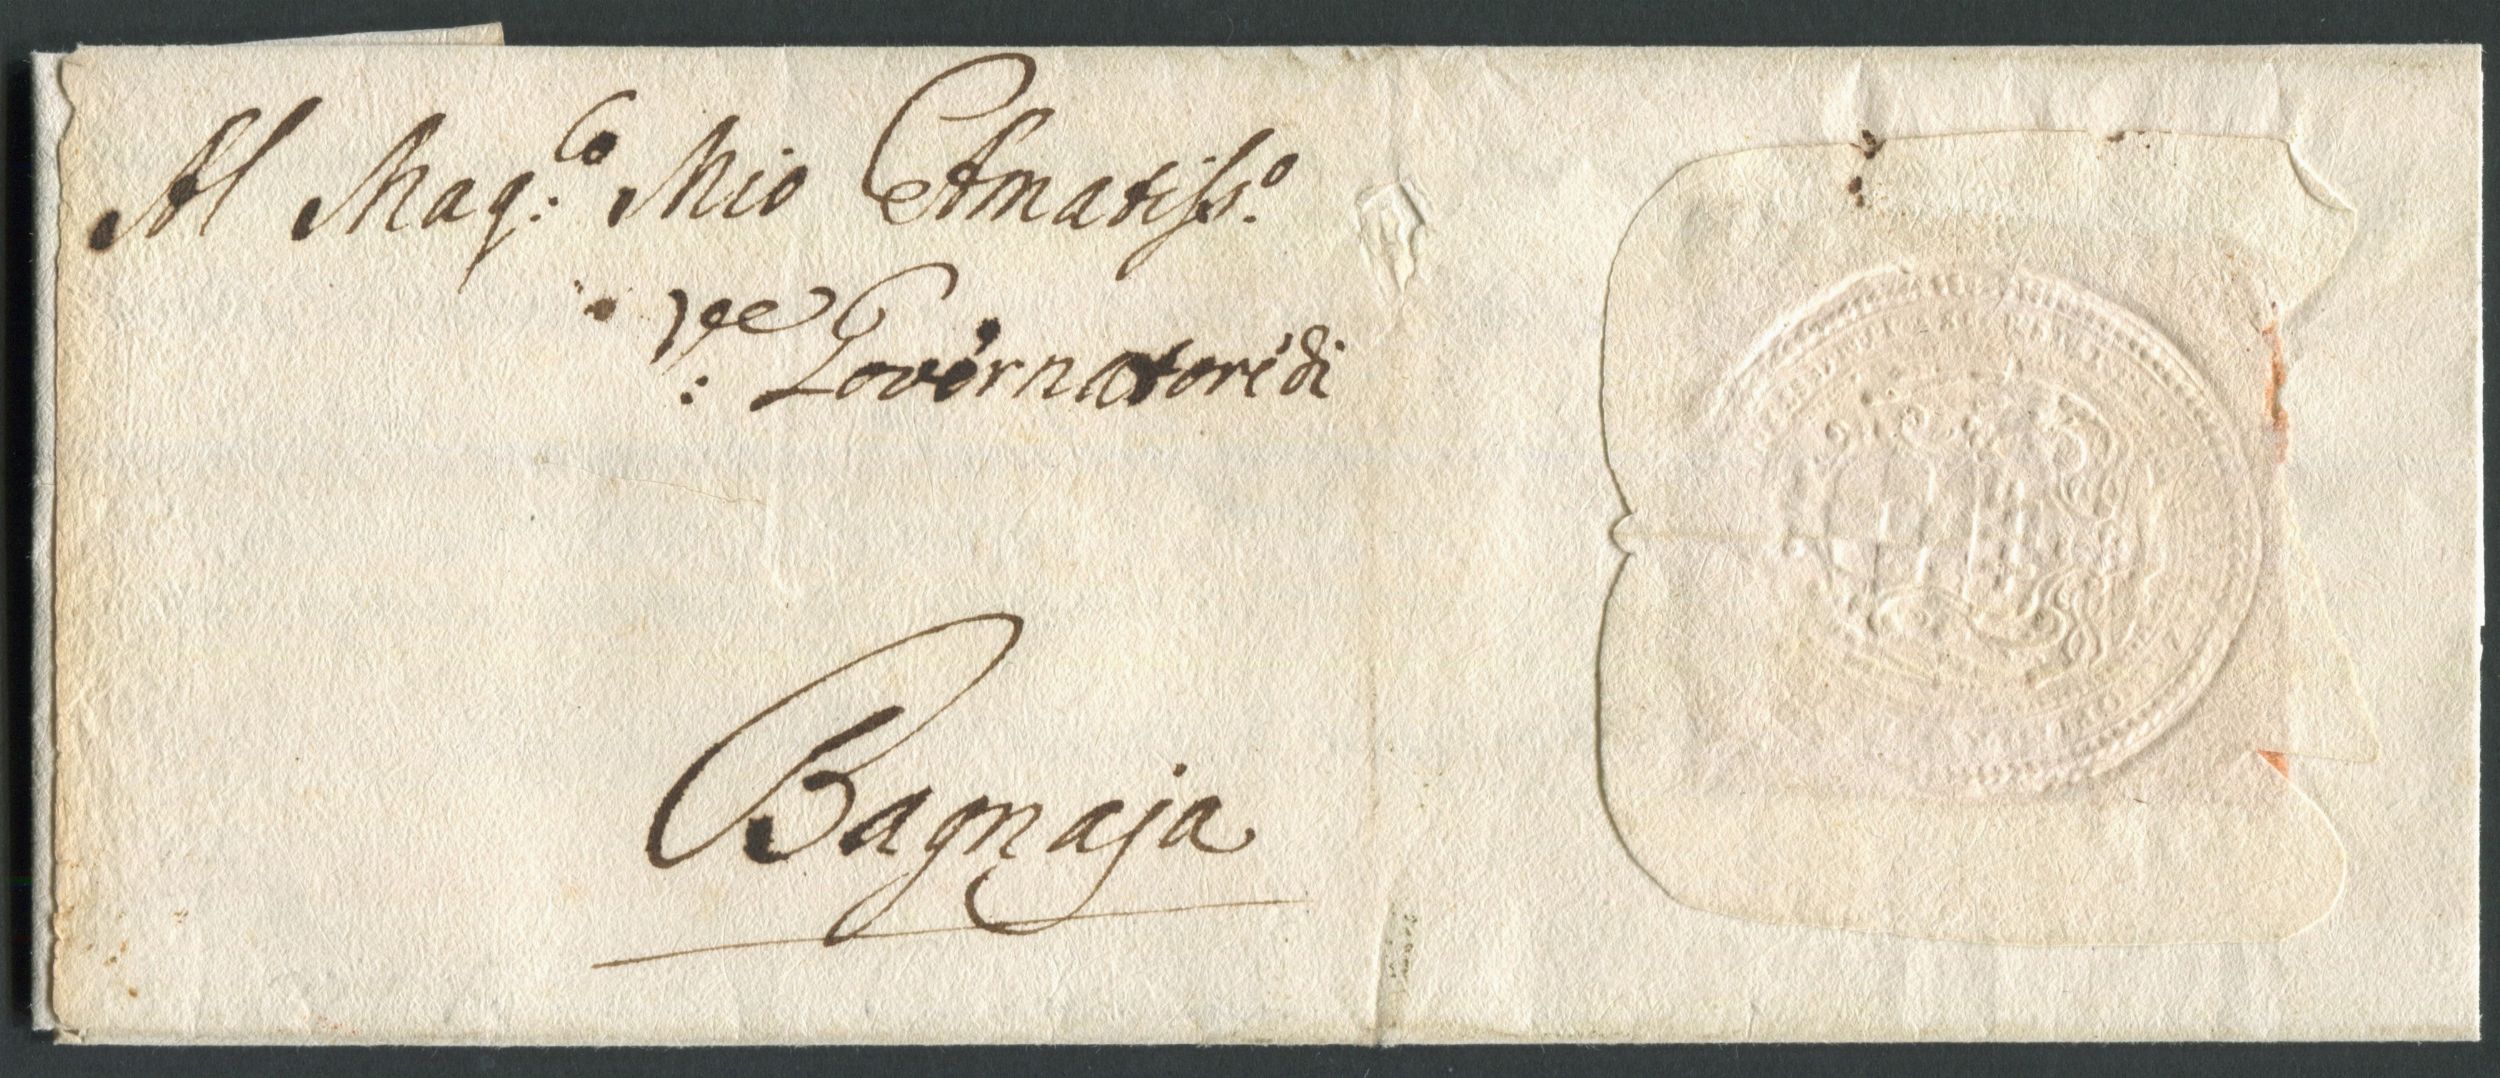 Al Mag.co Mio Amatiss.o
V.e Governatore di
Bagnaja